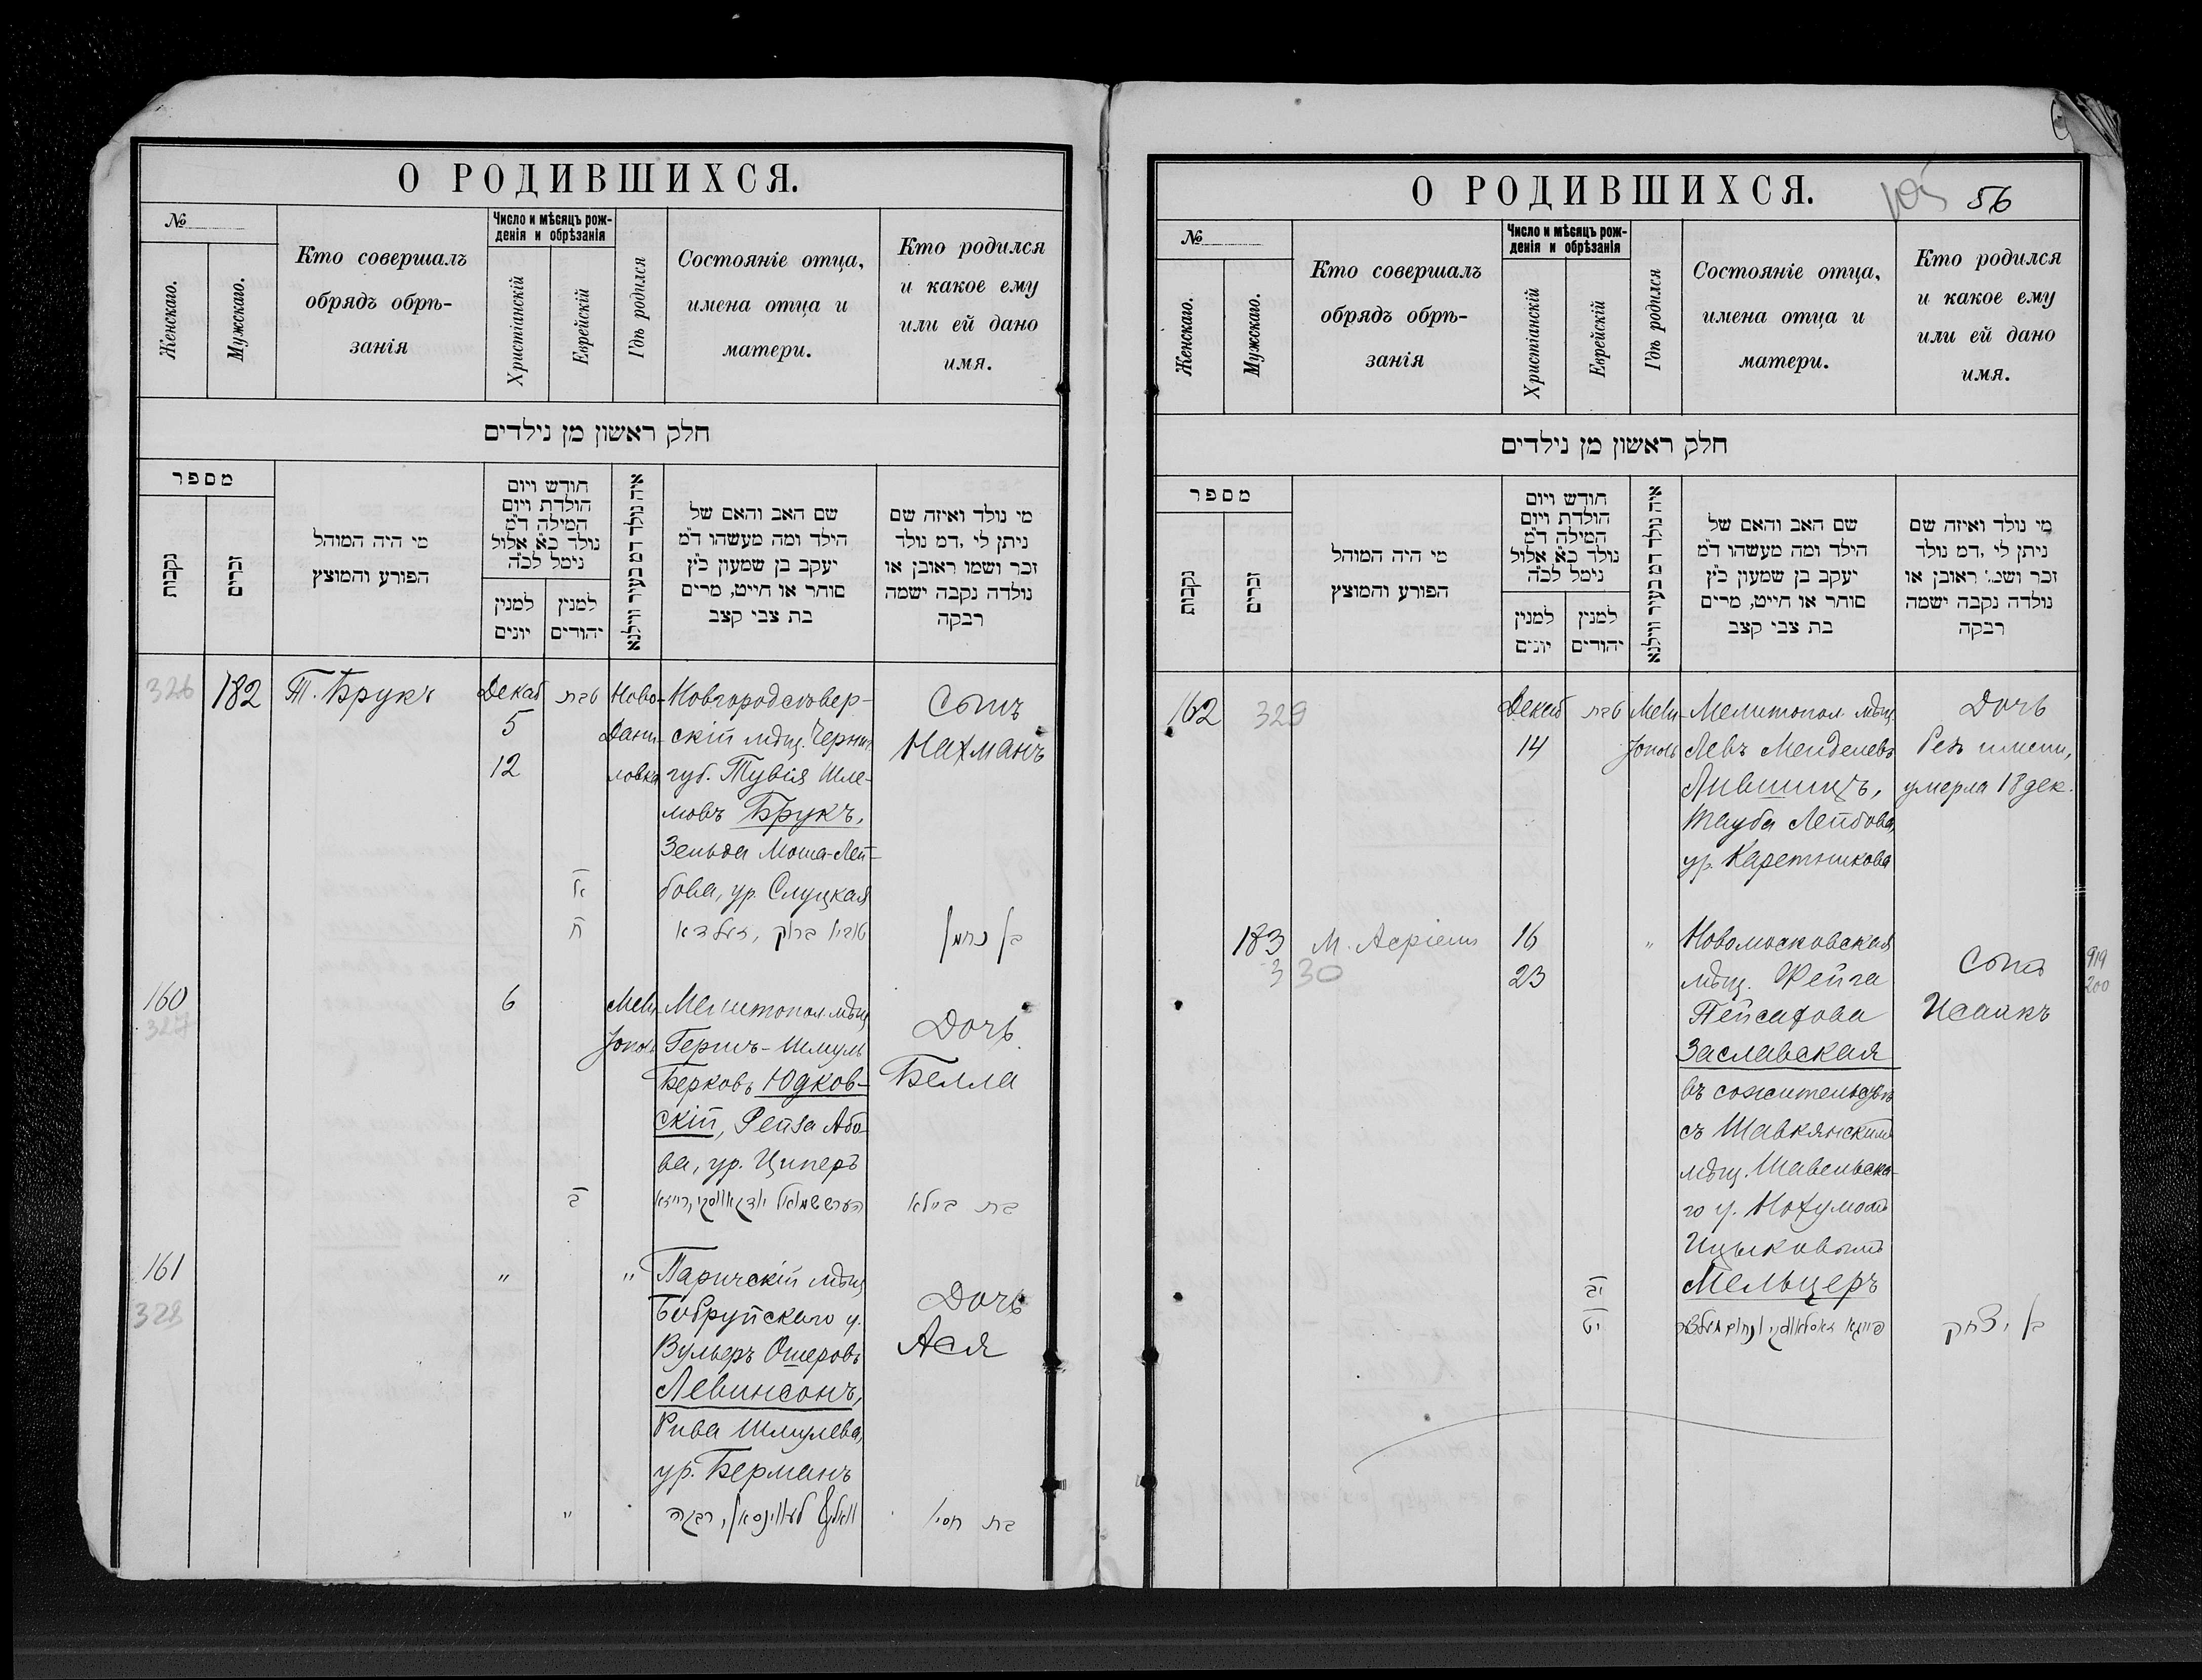 О РОДИВШИХСЯ.
№
Женскаго.
Мужскаго.
Кто совершалъ
обрядъ обрѣ-
занія
Число и мѣсяцъ рож-
денія и обрѣзанія
Христіанскій
Еврейскій
Гдѣ родился
Состояніе отца,
имена отца и
матери.
Кто родился
и какое ему
или ей дано
имя.
חלק ראשון מן נילדים
מספר
נקבות
זכרים
מי היה המוהל
הפורע והמוצץ
חודש ויום
הולדת ויום
המילה ד״מ
נולד כ״א אלול
נימל לכ״ה
למנין
יונים
למנין
יהודים
איה נולד דמ בעיר ווילנא
שם האב והאם של
הילד ומה מעשהו ד״מ
יעקב בן שמעון כ״ץ
סוחר או חייט, מרים
בת צבי קצב
מי נולד ואיזה שם
ניתן לי ,דמ נולד
זכר ושמו ראובן או
נולדה נקבה ישמה
רבקה
326
182
Т. Брукъ
Декаб
5
12
טבת
א
ח
Ново-
Дани-
ловка
Новгородсѣвер-
скій мѣщ. Черниг.
губ. Тувія Шле-
мовъ Брукъ,
Зельда Моша-Лей-
бова, ур. Слуцкая
טוביו ברוק, זעלדא
Сынъ
Нахманъ
בן נחמן
160
327
6
ב
Мели
тополь
Мелитопол. мѣщ
Гершъ-Шмуль
Берковъ Юдков-
скій, Рейза Або-
ва, ур. Циперъ
הערש שמואל יודקאווסקי, רייזא
Дочь
Белла
בת ביילא
161
328
"
"
"
Паричскій мѣщ
Бобруйскаго у.
Вульфъ Ошеровъ
Левинсонъ,
Рива Шмулева,
ур. Берманъ
וואלף לעווינסאן, רבקה
Дочь
Ася
בת חסיי
О РОДИВШИХСЯ.
105
56
№
Женскаго.
Мужскаго.
Кто совершалъ
обрядъ обрѣ-
занія
Число и мѣсяцъ рож-
денія и обрѣзанія
Христіанскій
Еврейскій
Гдѣ родился
Состояніе отца,
имена отца и
матери.
Кто родился
и какое ему
или ей дано
имя.
חלק ראשון מן נילדים
מספר
נקבות
זכרים
מי היה המוהל
הפורע והמוצץ
חודש ויום
הולדת ויום
המילה ד״מ
נולד כ״א אלול
נימל לכ״ה
למנין
יונים
למנין
יהודים
איה נולד דמ בעיר ווילנא
שם האב והאם של
הילד ומה מעשהו ד״מ
יעקב בן שמעון כ״ץ
סוחר או חייט, מרים
בת צבי קצב
מי נולד ואיזה שם
ניתן לי ,דמ נולד
זכר ושמו ראובן או
נולדה נקבה ישמה
רבקה
162
329
Декаб
14
טבת
Мели-
тополь
Мелитопол. мѣщ.
Левъ Менделевъ
Лившицъ,
Тауба Лейбова,
ур. Каретникова
Дочь
Безъ имени,
умерла 18 дек.
183
330
М. Асріель
16
23
יב
יט
"
Новомосковская
мѣщ. Фейга
Пейсахова
Заславская
въ сожительствѣ
съ Шавкянскимъ
мѣщ. Шавельска-
го у. Нохумомъ
Ицыковымъ
Мельцеръ
פייגא זאסלאווסקי ונחום מעלצער
Сынъ
Исаакъ
בן יצחק
919
200